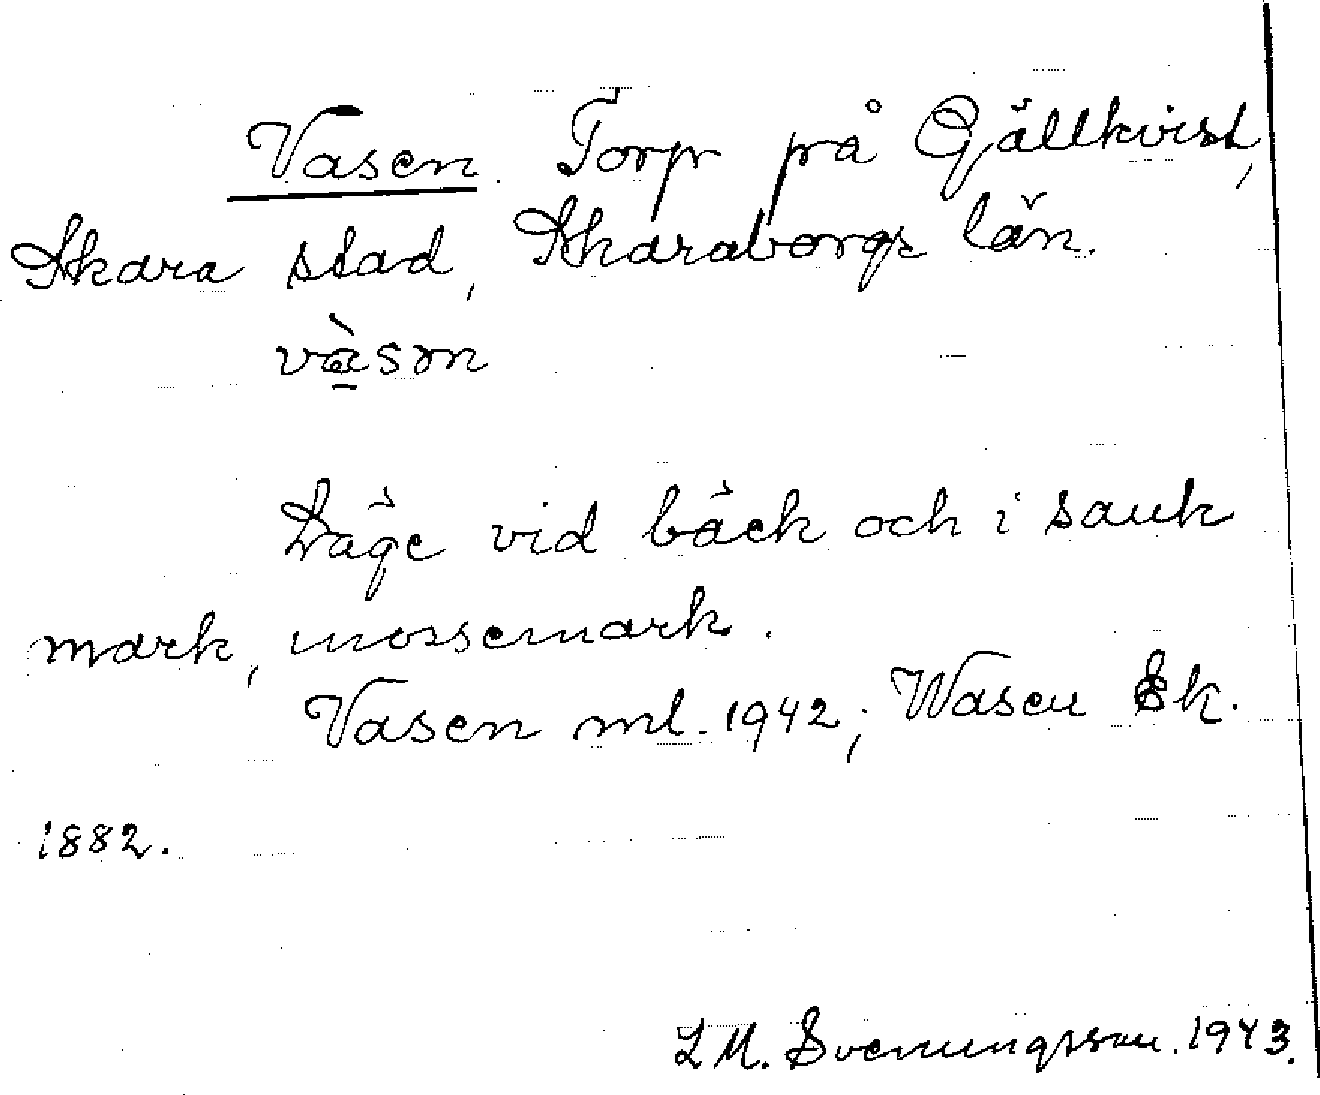 Vasen. Torp på Gjällkvist,
Skara stad, Skaraborgs län.
vàsen
Läge vid bäck och i sank
mark, mossemark.
Vasen ml. 1942; Wasen Ek.
1882.
L M. Svenungsson. 1943.